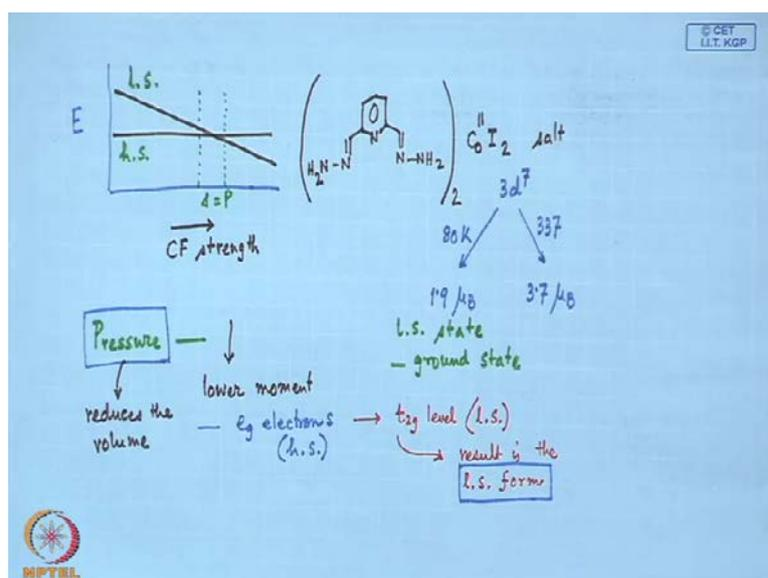 © CET
I.I.T. KGP
E
l.s.
h.s.
Δ = P
CF strength
H₂N-N
N
N-NH₂
2
Co^II I₂ salt
3d⁷
80K
337
1.9 μB
3.7 μB
l.s. state
- ground state
Pressure -
lower moment
reduces the
volume
- eg electrons
(h.s.)
→ t₂g level (l.s.)
result is the
l.s. form
NPTEL